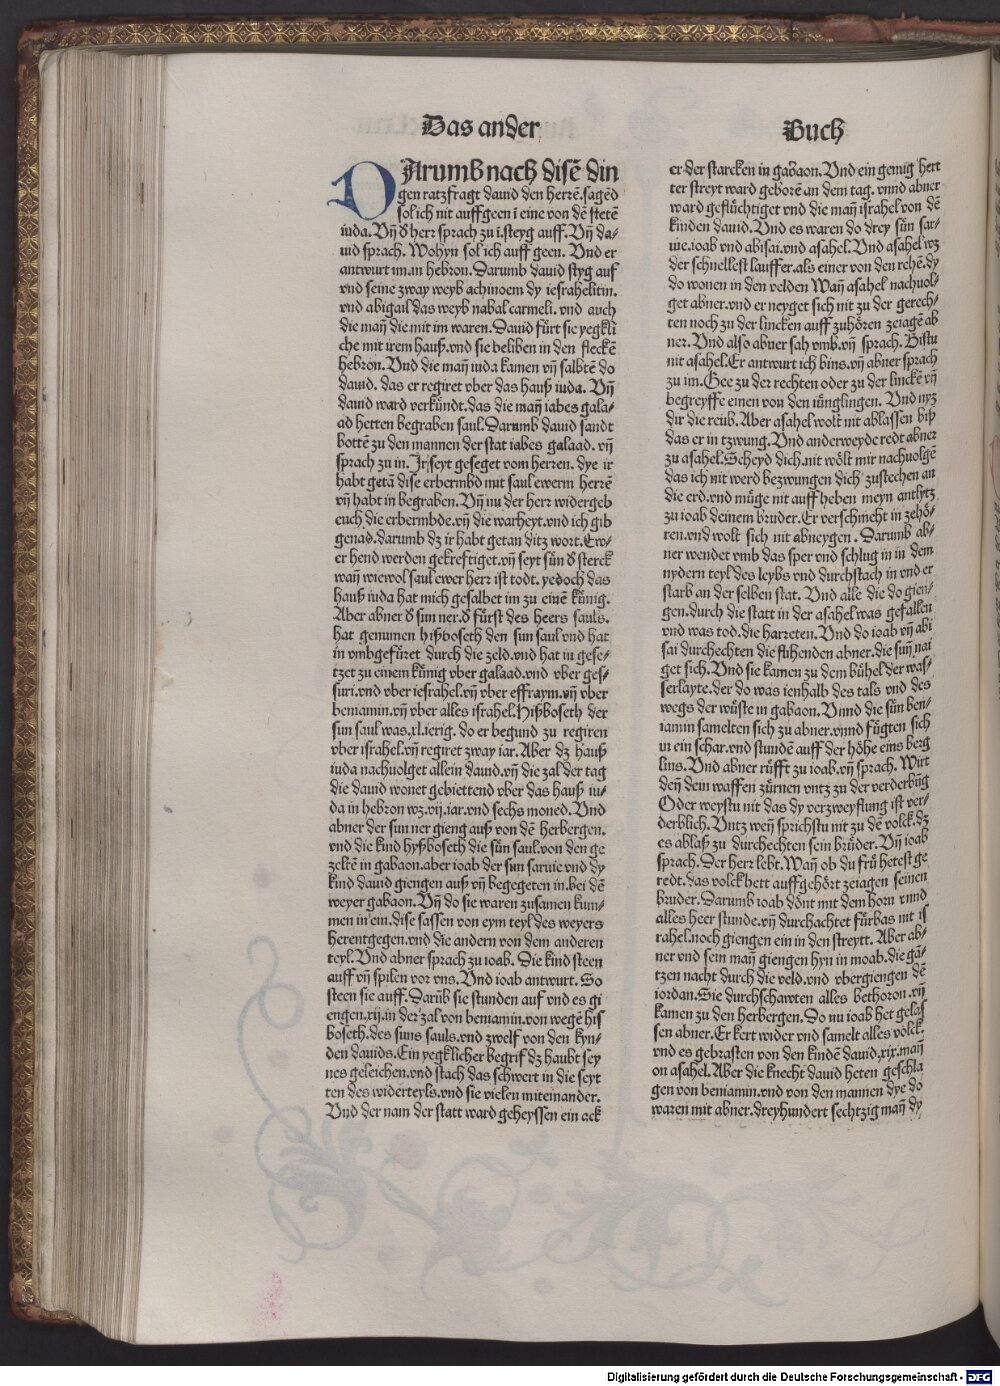 Das ander
Buch
DArumb nach disē din
gen ratzfragt dauid den herrē.sagēd
sol ich nit auffgeen ī eine von dē stetē
iuda. Vn̄ d̕ herr sprach zu ī.steyg auff. Vn̄ da⸗
uid sprach. Wohyn sol ich auff geen. Vnd er
antwurt im.in hebron. Darumb dauid styg auf
vnd seine zway weyb achinoem dy iesrahelitin.
vnd abigail das weyb nabal carmeli. vnd auch
die man̄ die mit im waren. Dauid fu̇rt sie yegkli
che mit irem hauß.vnd sie beliben in den fleckē
hebron. Vnd die man̄ iuda kamen vn̄ salbtē do
dauid. das er regiret vber das hauß iuda. Vn̄
dauid ward verku̇ndt.das die man̄ iabes gala⸗
ad hetten begraben saul. Darumb dauid sandt
bottē zu den mannen der stat iabes galaad. vn̄
sprach zu in. Ir seyt geseget vom herren. dye ir
habt getā dise erbermbd mit saul ewerm herrē
vn̄ habt in begraben. Vn̄ nu der herr widergeb
euch die erbermbde.vn̄ die warheyt.vnd ich gib
genad.darumb dz ir habt getan ditz wort. Ew⸗
er hend werden gekreftiget.vn̄ seyt su̇n d̕ sterck
wan̄ wiewol saul ewer herr ist todt. yedoch das
hauß iuda hat mich gesalbet im zu einē ku̇nig.
Aber abner d̕ sun ner.d̕ fu̇rst des heers sauls.
hat genumen hißboseth den sun saul vnd hat
in vmbgefu̇ret durch die zeld.vnd hat in gese⸗
tzet zu einem ku̇nig vber galaad.vnd vber ges⸗
suri.vnd vber iesrahel.vn̄ vber effraym.vn̄ vber
beniamin.vn̄ vber alles israhel. Hißboseth der
sun saul was.xl.ierig. do er begund zu regiren
vber israhel.vn̄ regiret zway iar. Aber dz hauß
iuda nachuolget allein dauid.vn̄ die zal der tag
die dauid wonet gebiettend vber das hauß iu⸗
da in hebron wz.vij.iar.vnd sechs moned. Vnd
abner der sun ner gieng auß von dē herbergen.
vnd die kind hyßboseth die su̇n saul.von den ge
zeltē in gabaon.aber ioab der sun saruie vnd dy
kind dauid giengen auß vn̄ begegeten in.bei dē
weyer gabaon. Vn̄ do sie waren zusamen kum⸗
men in ein.dise sassen von eym teyl des weyers
herentgegen.vnd die andern von dem anderen
teyl. Vnd abner sprach zu ioab. Die kind steen
auff vn̄ spilen vor vns. Vnd ioab antwurt. So
steen sie auff. Darūb sie stunden auf vnd es gi
engen.xij.in der zal von beniamin.von wegē his
boseth.des suns sauls.vnd zwelf von den kyn⸗
den dauids. Ein yegklicher begrif dz haubt sey
nes geleichen.vnd stach das schwert in die seyt
ten des widerteyls.vnd sie vielen miteinander.
Vnd der nam der statt ward geheyssen ein ack
er der starcken in gabaon. Vnd ein genug hert
ter streyt ward geborē an dem tag. vnnd abner
ward geflu̇chtiget vnd die man̄ israhel von dē
kinden dauid. Vnd es waren do drey su̇n sar⸗
uie.ioab vnd abisai.vnd asahel. Vnd asahel wz
der schnellest lauffer.als einer von den rehē.dy
do wonen in den velden Wan̄ asahel nachuol⸗
get abner.vnd er neyget sich nit zu der gerech⸗
ten noch zu der lincken auff zuhören zeiagē ab
ner. Vnd also abner sah vmb.vn̄ sprach. Bistu
nit asahel. Er antwurt ich bins.vn̄ abner sprach
zu im. Gee zu der rechten oder zu der linckē vn̄
begreyffe einen von den iu̇nglingen. Vnd nyz
dir die reub. Aber asahel wolt nit ablassen biß
das er in tzwung. Vnd anderweyde redt abner
zu asahel. Scheyd dich.nit wölt mir nachuolgē
das ich nit werd bezwungen dich zustechen an
die erd.vnd mu̇ge nit auff heben meyn anthytz
zu ioab deinem bruder. Er verschmeht in zehö⸗
ren.vnd wolt sich nit abneygen. Darumb ab⸗
ner wendet vmb das sper vnd schlug in in dem
nydern teyl des leybs vnd durchstach in vnd er
starb an der selben stat. Vnd alle die do gien⸗
gen.durch die statt in der asahel was gefallen
vnd was tod.die harreten. Vnd do ioab vn̄ abi
sai durchechten die flihenden abner.die sun̄ nai
get sich. Vnd sie kamen zu dem bu̇hel der was⸗
serlayte.der do was ienhalb des tals vnd des
wegs der wu̇ste in gabaon. Vnnd die su̇n ben⸗
iamin samelten sich zu abner.vnnd fu̇gten sich
in ein schar.vnd stundē auff der höhe eins berg
lins. Vnd abner ru̇fft zu ioab.vn̄ sprach. Wirt
den̄ dein waffen zu̇rnen vntz zu der verderbūg
Oder weystu nit das dy verzweyflung ist ver⸗
derblich. Vntz wen̄ sprichstu nit zu dē volck.dz
es ablaß zu durchechten sein bru̇der. Vn̄ ioab
sprach. Der herr lebt. Wan̄ ob du fru̇ hetest ge
redt.das volck hett auffgehört zeiagen seinen
bruder. Darumb ioab dönt mit dem horn vnnd
alles heer stunde.vn̄ durchachtet fu̇rbas nit is
rahel.noch giengen ein in den streytt. Aber ab⸗
ner vnd sein man̄ giengen hyn in moab.die gā⸗
tzen nacht durch die veld.vnd vbergiengen dē
iordan. Sie durchschawten alles bethoron.vn̄
kamen zu den herbergen. Do nu ioab het gelas
sen abner. Er kert wider vnd samelt alles völck.
vnd es gebrasten von den kindē dauid.xix.man̄
on asahel. Aber die knecht dauid heten geschla
gen von beniamin.vnd von den mannen dye do
waren mit abner.dreyhundert sechtzig man̄ dy
Digitalisierung gefördert durch die Deutsche Forschungsgemeinschaft - DFG